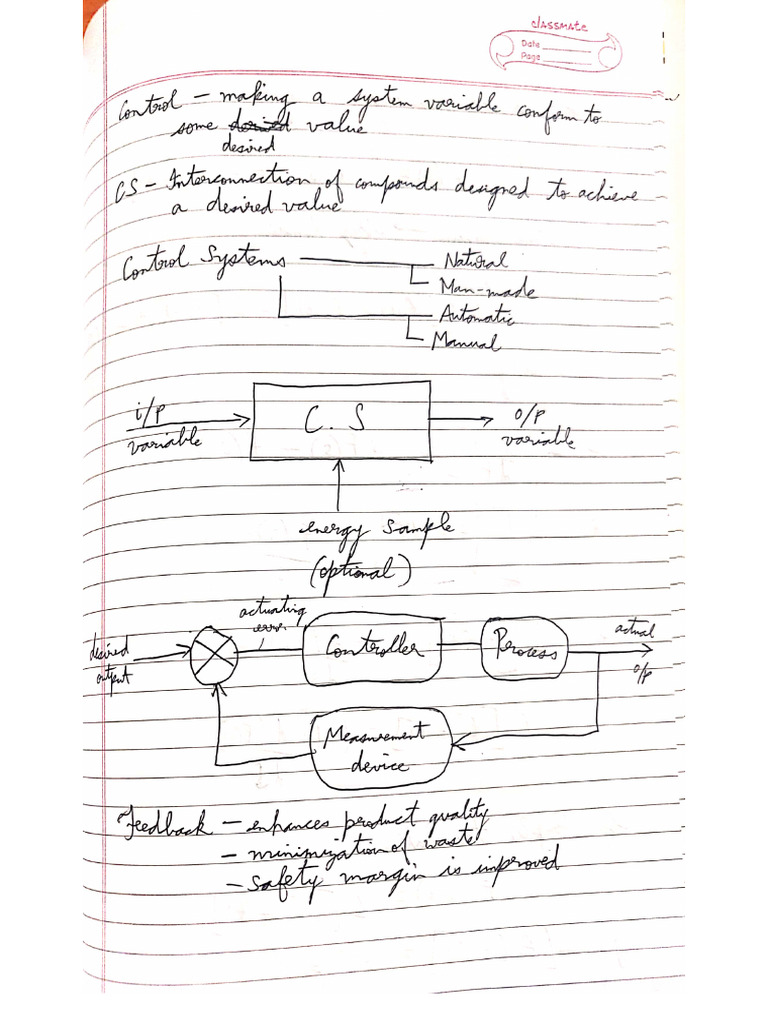 classmate
Date
Page
Control – making a system variable conform to
some value
desired
CS – Interconnection of compounds designed to achieve
a desired value
Control Systems
Natural
Man-made
Automatic
Manual
i/p
variable
C.S
o/p
variable
energy sample
(optional)
actuating
error
desired
output
Controller
Process
actual
o/p
Measurement
device
Feedback – enhances product quality
– minimization of waste
– safety margin is improved